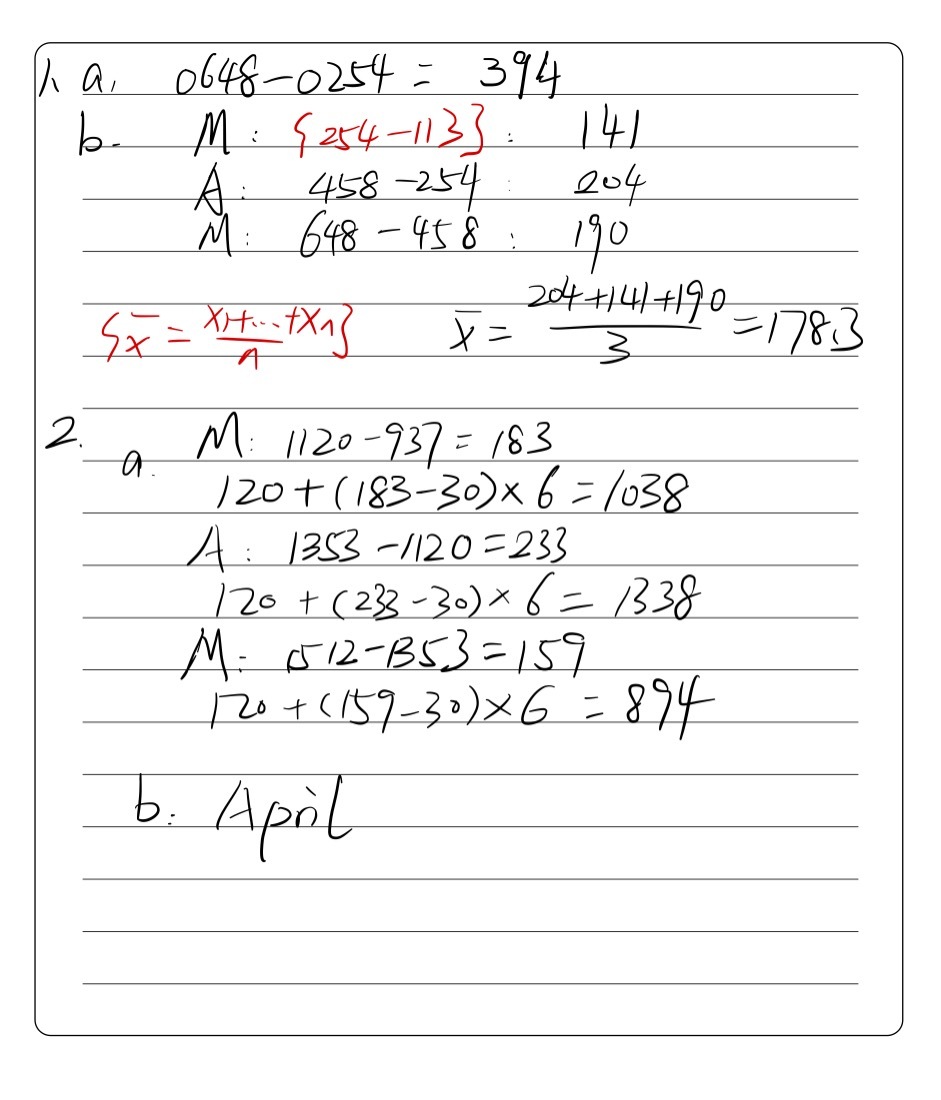 1. a. 0648-0254 = 394
b. M: {254-113}: 141
A: 458-254: 204
M: 648-458: 190
{x̄ = x₁+...+xₙ/n} x̄ = 204+141+190/3 = 178.3
2. a. M: 1120-937 = 183
120+(183-30)×6 = 1038
A: 1353-1120=233
120+(233-30)×6 = 1338
M: 1512-1353=159
120+(159-30)×6 = 894
b. April